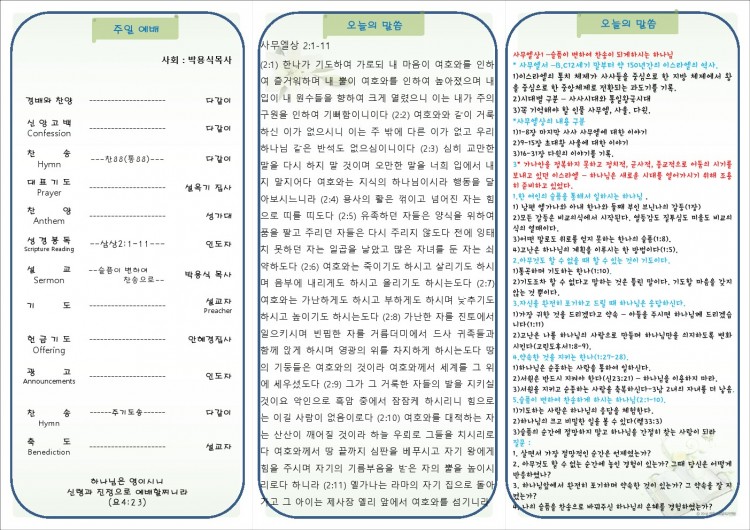 주일 예배
사회 : 박용식목사
경배와 찬양 ---------------- 다같이
신앙고백 ---------------- 다같이
Confession
찬 송 ---찬88(통88)--- 다같이
Hymn
대표기도 ---------------- 설옥기 집사
Prayer
찬 양 ---------------- 성가대
Anthem
성경봉독 ---삼상2:1-11--- 인도자
Scripture Reading
설 교 --슬픔이 변하여 박용식 목사
Sermon 찬송으로--
기 도 ---------------- 설교자
Preacher
헌금기도 ---------------- 안혜경집사
Offering
광 고 ---------------- 인도자
Announcements
찬 송 ------주기도송------ 다같이
Hymn
축 도 ---------------- 설교자
Benediction
하나님은 영이시니
신령과 진정으로 예배할찌니라
(요4:23)
오늘의 말씀
사무엘상 2:1-11
(2:1) 한나가 기도하여 가로되 내 마음이 여호와를 인하
여 즐거워하며 내 뿔이 여호와를 인하여 높아졌으며 내
입이 내 원수들을 향하여 크게 열렸으니 이는 내가 주의
구원을 인하여 기뻐함이니이다 (2:2) 여호와와 같이 거룩
하신 이가 없으시니 이는 주 밖에 다른 이가 없고 우리
하나님 같은 반석도 없으심이니이다 (2:3) 심히 교만한
말을 다시 하지 말 것이며 오만한 말을 너희 입에서 내
지 말지어다 여호와는 지식의 하나님이시라 행동을 달
아보시느니라 (2:4) 용사의 활은 꺾이고 넘어진 자는 힘
으로 띠를 띠도다 (2:5) 유족하던 자들은 양식을 위하여
품을 팔고 주리던 자들은 다시 주리지 않도다 전에 잉태
치 못하던 자는 일곱을 낳았고 많은 자녀를 둔 자는 쇠
약하도다 (2:6) 여호와는 죽이기도 하시고 살리기도 하시
며 음부에 내리게도 하시고 올리기도 하시는도다 (2:7)
여호와는 가난하게도 하시고 부하게도 하시며 낮추기도
하시고 높이기도 하시는도다 (2:8) 가난한 자를 진토에서
일으키시며 빈핍한 자를 거름더미에서 드사 귀족들과
함께 앉게 하시며 영광의 위를 차지하게 하시는도다 땅
의 기둥들은 여호와의 것이라 여호와께서 세계를 그 위
에 세우셨도다 (2:9) 그가 그 거룩한 자들의 발을 지키실
것이요 악인으로 흑암 중에서 잠잠하게 하시리니 힘으로
는 이길 사람이 없음이로다 (2:10) 여호와를 대적하는 자
는 산산이 깨어질 것이라 하늘 우뢰로 그들을 치시리로
다 여호와께서 땅 끝까지 심판을 베푸시고 자기 왕에게
힘을 주시며 자기의 기름부음을 받은 자의 뿔을 높이시
리로다 하니라 (2:11) 엘가나는 라마의 자기 집으로 돌아
가고 그 아이는 제사장 엘리 앞에서 여호와를 섬기니라
오늘의 말씀
사무엘상1 –슬픔이 변하여 찬송이 되게하시는 하나님
* 사무엘서 –B.C12세기 말부터 약 150년간의 이스라엘의 역사.
1)이스라엘의 통치 체제가 사사들을 중심으로 한 지방 체제에서 왕
을 중심으로 한 중앙체제로 전환되는 과도기를 기록.
2)시대별 구분 – 사사시대와 통일왕국시대
3)꼭 기억해야 할 인물 사무엘, 사울, 다윗.
*사무엘상의 내용 구분
1)1-8장 마지막 사사 사무엘에 대한 이야기
2)9-15장 초대왕 사울에 대한 이야기
3)16-31장 다윗의 이야기를 기록.
3* 가나안을 정복하지 못하고 정치적, 군사적, 종교적으로 어둠의 시기를
보내고 있던 이스라엘 – 하나님은 새로운 시대를 열어가시기 위해 조용
히 준비하고 있었다.
1.한 여인의 슬픔을 통해서 일하시는 하나님.
1) 남편 엘가나와 아내 한나와 둘째 부인 브닌나의 갈등(1장)
2)모든 갈등은 비교의식에서 시작된다. 열등감도 질투심도 미움도 비교의
식의 열매이다.
3)어떤 말로도 위로를 얻지 못하는 한나의 슬픔(1:8).
4)고난은 하나님의 계획을 이루시는 한 방법이다(1:5).
2.아무것도 할 수 없을 때 할 수 있는 것이 기도이다.
1)통곡하며 기도하는 한나(1:10).
2)기도조차 할 수 없다고 말하는 것은 틀린 말이다. 기도할 마음을 갖지
않는 것 뿐이다.
3.자신을 완전히 포기하고 드릴 때 하나님은 응답하신다.
1)가장 귀한 것을 드리겠다고 약속 – 아들을 주시면 하나님께 드리겠습
니다(1:11)
2)고난은 나를 하나님의 사람으로 만들며 하나님만을 의지하도록 변화
시킨다(고린도후서1:8-9).
4.약속한 것을 지키는 한나(1:27-28).
1)하나님은 순종하는 사람을 통하여 일하신다.
2)서원은 반드시 지켜야 한다(신23:21) – 하나님을 이용하지 마라.
3)서원을 지키고 순종하는 사람을 축복하신다-3남 2녀의 자녀를 더 낳음.
5.슬픔이 변하여 찬송하게 하시는 하나님(2:1-10).
1)기도하는 사람은 하나님의 응답을 체험한다.
2)하나님의 크고 비밀한 일을 볼 수 있다(렘33:3)
3)슬픔의 순간에 절망하지 말고 하나님을 간절히 찾는 사람이 되라
질문 :
1. 살면서 가장 절망적인 순간은 언제였는가?
2. 아무것도 할 수 없는 순간에 놓인 경험이 있는가? 그때 당신은 어떻게
반응하였나?
3. 하나님앞에서 완전히 포기하며 약속한 것이 있는가? 그 약속을 잘 지
켰는가?
4.나의 슬픔을 찬송으로 바꿔주신 하나님의 은혜를 경험하였는가?